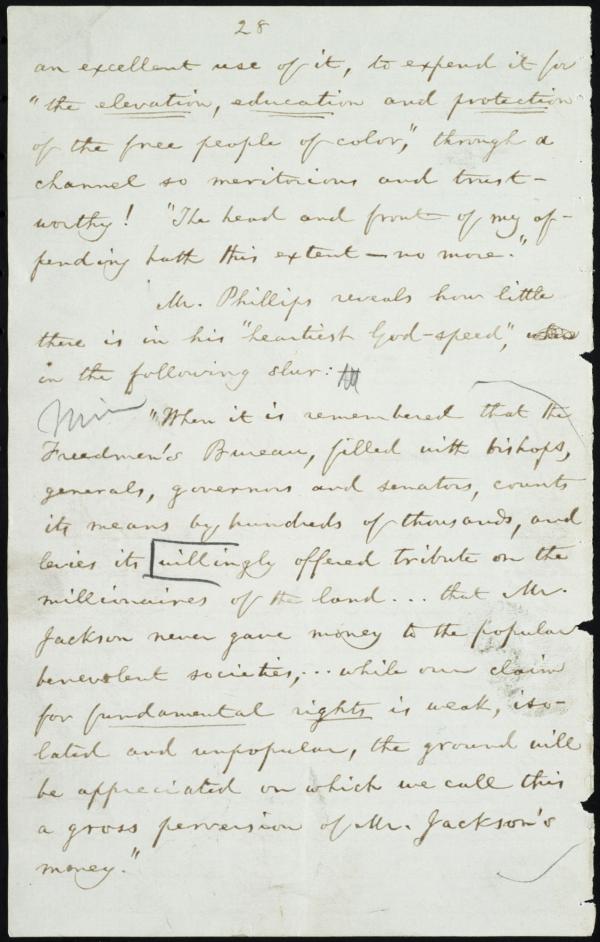 28
an excellent use of it, to expend it for
"the elevation, education and protection
of the free people of color," through a
channel so meritorious and trust-
worthy! "The head and front of my of-
fending hath this extent — no more."
Mr. Phillips reveals how little
there is in his "heartiest God-speed",
in the following slur:
"When it is remembered that the
Freedmen's Bureau, filled with bishops,
generals, governors and senators, counts
its means by hundreds of thousands, and
levies its willingly offered tribute on the
millionaires of the land... that Mr.
Jackson never gave money to the popular
benevolent societies,... while our claim
for fundamental rights is weak, iso-
lated and unpopular, the ground will
be appreciated on which we call this
a gross perversion of Mr. Jackson's
money."